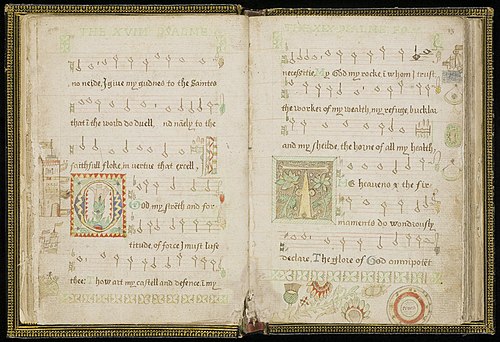 THE XVIII PSALME
no neide, I give my gudnes to the Saintes
that ĩ the world do duell, and nãely to the
faithfull floke, in vertue that excell,
O God, my strẽth and for
titude, of force I must lufe
thee: Thow art my castell and defence, ĩ my
necessitie, My God my rocke ĩ whom I trust,
the worker of my wealth, my refuge, buckler,
and my sheilde, the horne of all my health,
THE heavens & the fir
maments do wondrously
declare, The glore of God omnipotẽt